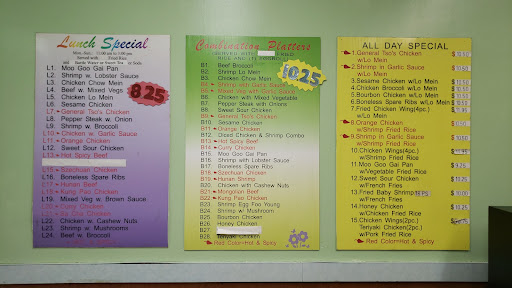 Lunch Special
Mon.-Sun. 11:00 am to 3:00 pm
Served with: Fried Rice
Garlic Water or Sweet Tea or Soda
8.25
L1. Moo Goo Gai Pan
L2. Shrimp w. Lobster Sauce
L3. Chicken Chow Mein
L4. Beef w. Mixed Vegs
L5. Chicken Lo Mein
L6. Sesame Chicken
L7. General Tso's Chicken
L8. Pepper Steak w. Onion
L9. Shrimp w. Broccoli
L10. Chicken w. Garlic Sauce
L11. Orange Chicken
L12. Sweet Sour Chicken
L13. Hot Spicy Beef
L15. Szechuan Chicken
L16. Boneless Spare Ribs
L17. Hunan Beef
L18. Kung Pao Chicken
L19. Mixed Veg w. Brown Sauce
L20. Curry Chicken
L22. Chicken w. Cashew Nuts
L23. Shrimp w. Mushrooms
L24. Beef w. Broccoli
Combination Platters
10.25
B1. Beef Broccoli
B2. Shrimp Lo Mein
B3. Chicken Chow Mein
B4. Shrimp with Garlic Sauce
B5. Mixed Veg with Garlic Sauce
B6. Chicken with Mixed Vegetable
B7. Pepper Steak with Onions
B8. Sweet Sour Chicken
B9. General Tso's Chicken
B10. Sesame Chicken
B11. Orange Chicken
B12. Diced Chicken & Shrimp Combo
B13. Hot Spicy Beef
B14. Curry Chicken
B15. Moo Goo Gai Pan
B16. Shrimp with Lobster Sauce
B17. Boneless Spare Ribs
B18. Szechuan Chicken
B19. Hunan Shrimp
B20. Chicken with Cashew Nuts
B21. Hunan Beef
B22. Kung Pao Chicken
B23. Shrimp Egg Foo Young
B24. Shrimp w. Mushroom
B25. Bourbon Chicken
B26. Honey Chicken
B27.
B28. Teriyaki Chicken
Red Color=Hot & Spicy
ALL DAY SPECIAL
1. General Tso's Chicken $10.50
w/Lo Mein
2. Shrimp in Garlic Sauce $10.50
w/Lo Mein
3. Sesame Chicken w/Lo Mein
4. Chicken Broccoli w/Lo Mein
5. Bourbon Chicken w/Lo Mein
6. Boneless Spare Ribs w/Lo Mein
7. Fried Chicken Wing(4pc.)
w/Lo Mein
8. Orange Chicken
w/Shrimp Fried Rice
9. Shrimp in Garlic Sauce
w/Shrimp Fried Rice
10. Chicken Wings(4pc.)
w/Shrimp Fried Rice
11. Moo Goo Gai Pan
w/Vegetable Fried Rice
12. Sweet Sour Chicken
w/French Fries
13. Fried Baby Shrimp
w/French Fries
14. Honey Chicken
w/Chicken Fried Rice
15. Chicken Wings(2pc.)
Teriyaki Chicken(2pc.)
w/Pork Fried Rice
Red Color=Hot & Spicy